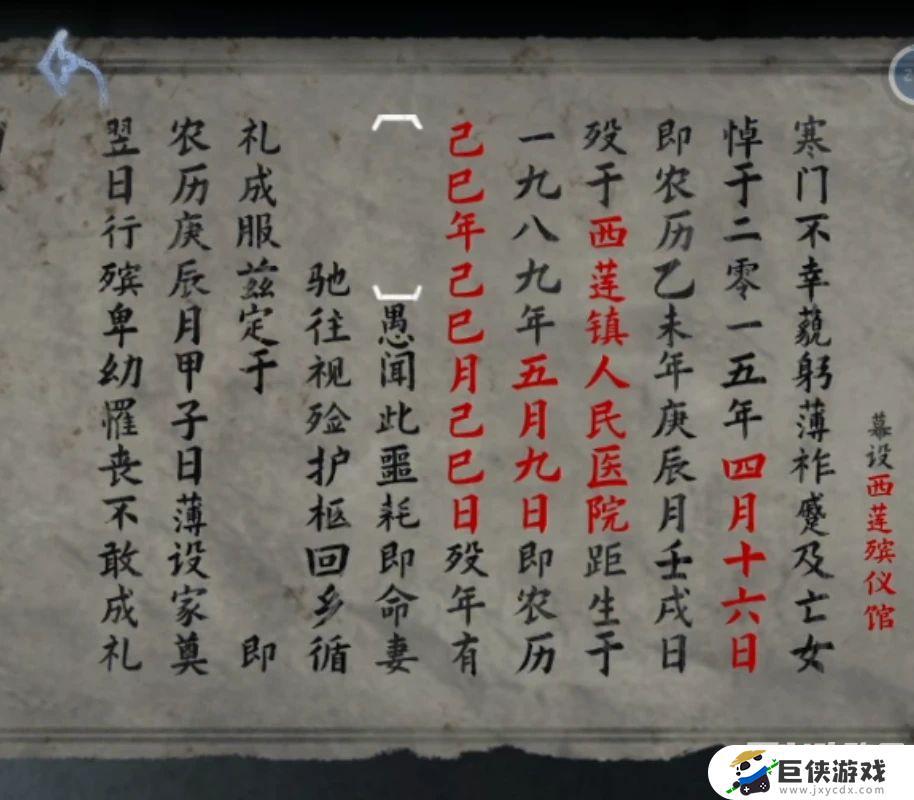 幕设西莲殡仪馆
寒门不幸藐躬薄祚蹙及亡女
悼于二零一五年四月十六日
即农历乙未年庚辰月壬戌日
殁于西莲镇人民医院距生于
一九八九年五月九日即农历
己巳年己巳月己巳日殁年有
愚闻此噩耗即命妻
驰往视殓护柩回乡循
礼成服兹定于 即
农历庚辰月甲子日薄设家奠
翌日行殡卑幼罹丧不敢成礼
巨侠游戏
www.jxycdx.com